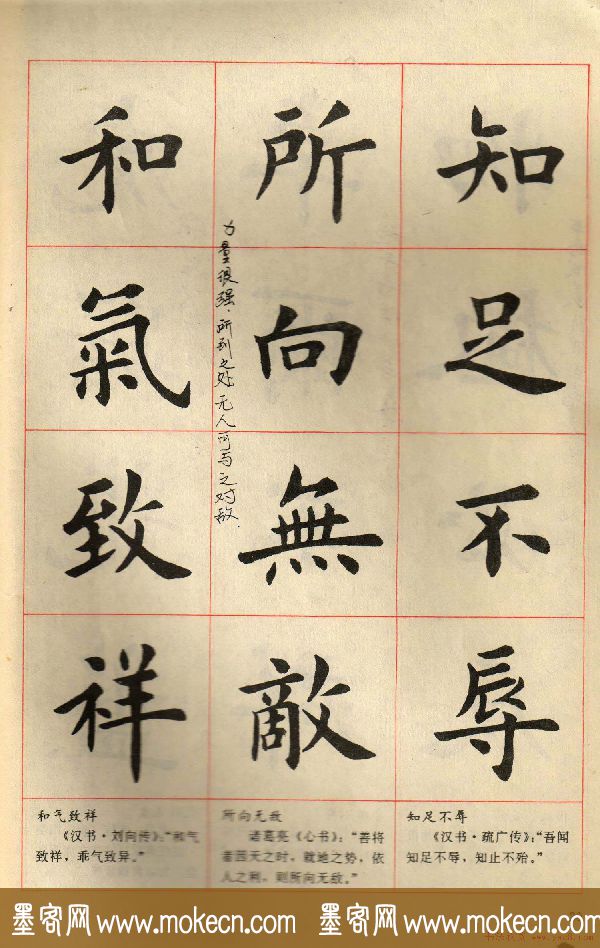 知足不辱
所向無敵
力量很强，所到之处无人可与之对敌.
和氣致祥
知足不辱
《汉书·疏广传》：“吾闻
知足不辱，知止不殆。”
所向无敌
诸葛亮《心书》：“善将
者因天之时，就地之势，依
人之利，则所向无敌。”
和气致祥
《汉书·刘向传》：“和气
致祥，乖气致异。”
墨客网 www.mokecn.com 墨客网 www.mokecn.com